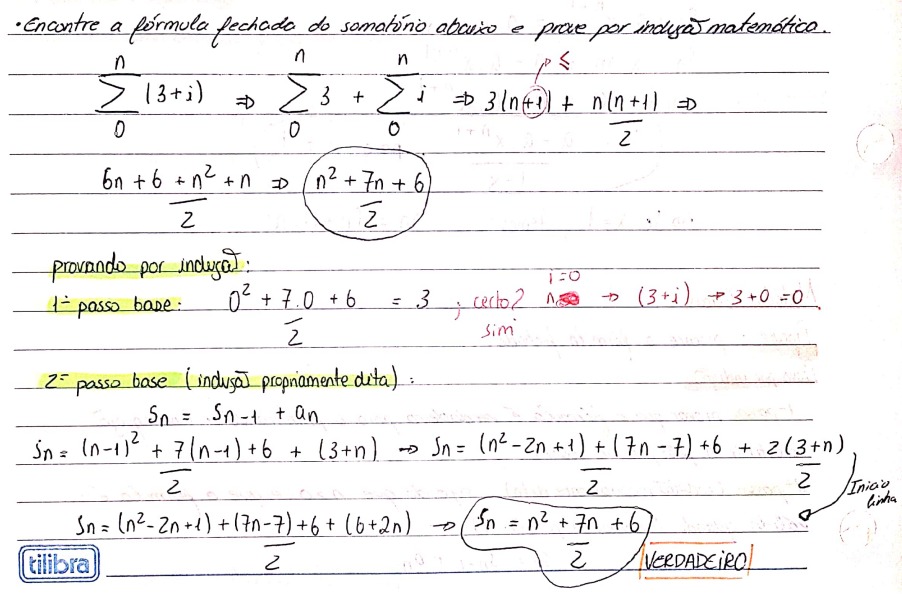 • Encontre a fórmula fechada do somatório abaixo e prove por indução matemática.
n n n → ≤
∑ (3+i) ⇒ ∑ 3 + ∑ i ⇒ 3(n+1) + n(n+1)/2 ⇒
0 0 0
6n + 6 + n² + n / 2 ⇒ n² + 7n + 6 / 2
provando por indução:
1º passo base: 0² + 7.0 + 6 / 2 = 3 ; certo? sim i=0 n → (3+i) → 3+0 =0
2º passo base (indução propriamente dita):
Sn = Sn-1 + an
Sn = (n-1)² + 7(n-1) + 6 / 2 + (3+n) → Sn = (n²-2n+1) + (7n-7) + 6 / 2 + 2(3+n) / 2
Início linha
Sn = (n²-2n+1) + (7n-7) + 6 + (6+2n) / 2 → Sn = n² + 7n + 6 / 2
VERDADEIRO
tilibra